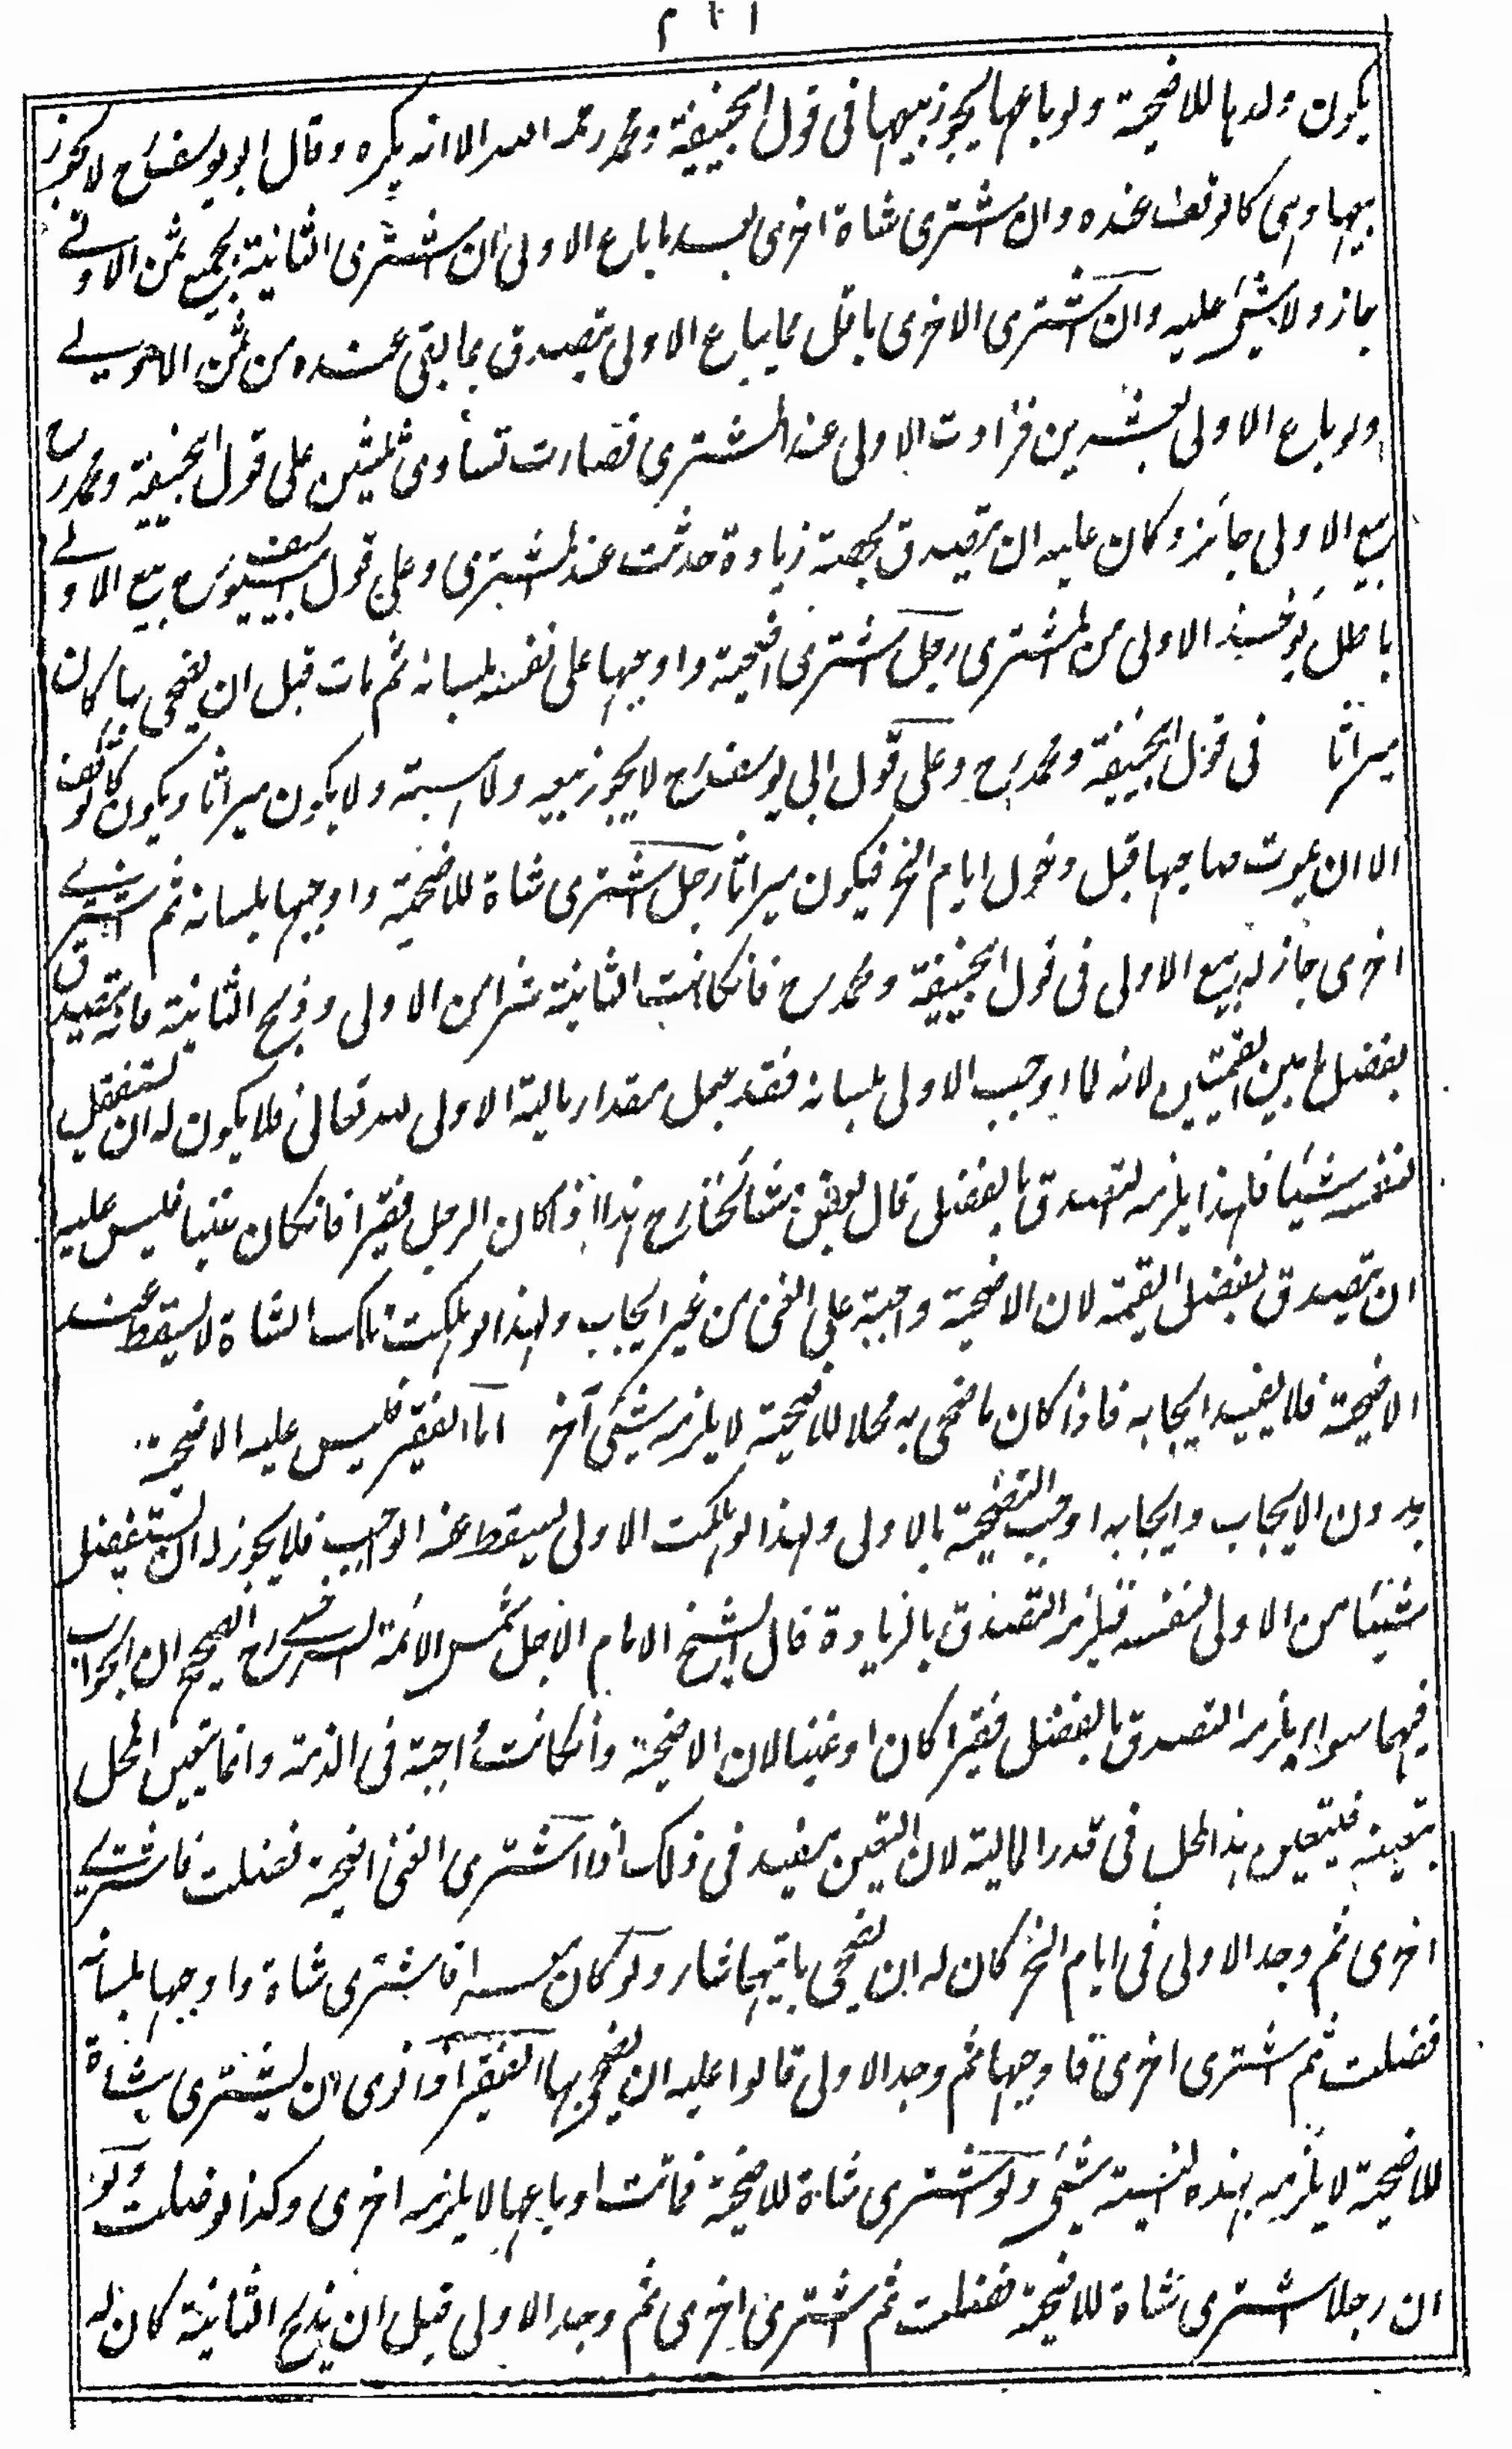 يكون ولدها للاضحية ولو باعها يجوز بيعها فى قول ابيحنيفة ومحمد رحمه الله الا انه يكره وقال ابو يوسف رح لا يجوز
بيعها وهى كالوقف عنده وان اشترى شاة اخرى بعد ما باع الاولى ان اشترى الثانية بجميع ثمن الاولى
جاز ولا شئ عليه وان اشترى الاخرى باقل مما باع الاولى يتصدق بما بقى عنده من ثمن الاولى
ولو باع الاولى بعشرين فزادت الاولى عند المشترى فصارت تساوى ثلثين على قول ابيحنيفة ومحمد رح
بيع الاولى جائز وكان عليه ان يتصدق بحصة زيادة حدثت عند المشترى وعلى قول ابيوسف رح بيع الاولى
باطل يوخذ الاولى من المشترى رجل اشترى اضحية واوجبها على نفسه بلسانه ثم مات قبل ان يضحى بها كان
ميراثا فى قول ابيحنيفة ومحمد رح وعلى قول ابى يوسف رح لا يجوز بيعه ولا هبته ولا يكون ميراثا ويكون كالوقف
الا ان يموت صاحبها قبل دخول ايام النحر فيكون ميراثا رجل اشترى شاة للاضحية واوجبها بلسانه ثم اشترى
اخرى جاز له بيع الاولى فى قول ابيحنيفة ومحمد رح فان كانت الثانية شرا من الاولى وذبح الثانية فانه يتصدق
بفضل ما بين القيمتين لانه لما اوجب الاولى بلسانه فقد جعل مقدار مالية الاولى لله تعالى فلا يكون له ان يستفضل
لنفسه شيئا فلهذا يلزمه التصدق بالفضل قال بعض مشائخنا رح هذا اذا كان الرجل فقيرا فان كان غنيا فليس عليه
ان يتصدق بفضل القيمة لان الاضحية واجبة على الغنى من غير ايجاب ولهذا لو هلكت تلك الشاة لا يسقط عنه
الاضحية فلا يفيد ايجابه فاذا كان ما ضحى به محلا للاضحية لا يلزمه شئ آخر اما الفقير فليس عليه الاضحية
بدون الايجاب وايجابه اوجب التضحية بالاولى ولهذا لو هلكت الاولى يسقط عنه الواجب فلا يجوز له ان يستفضل
شيئا من الاولى لنفسه فيلزمه التصدق بالزيادة قال الشيخ الامام الاجل شمس الائمة السرخسى رح الصحيح ان الجواب
فيهما سواء يلزمه التصدق بالفضل فقيرا كان او غنيا لان الاضحية وان كانت واجبة فى الذمة وانما يتعين المحل
بتعيينه فيتعين هذا المحل فى قدر المالية لان التعيين مفيد فى ذلك اذا اشترى الغنى اضحية فضلت فاشترى
اخرى ثم وجد الاولى فى ايام النحر كان له ان يضحى بايتهما شاء ولو كان معسرا فاشترى شاة واوجبها بلسانه
فضلت ثم اشترى اخرى فاوجبها ثم وجد الاولى قالوا عليه ان يضحى بهما الفقير اذا نوى ان يشترى شاة
للاضحية لا يلزمه بهذه النية شئ ولو اشترى شاة للاضحية فماتت او باعها لا يلزمه اخرى وكذا لو ضلت ولو
ان رجلا اشترى شاة للاضحية فضلت ثم اشترى اخرى ثم وجد الاولى قبل ان يذبح الثانية كان له